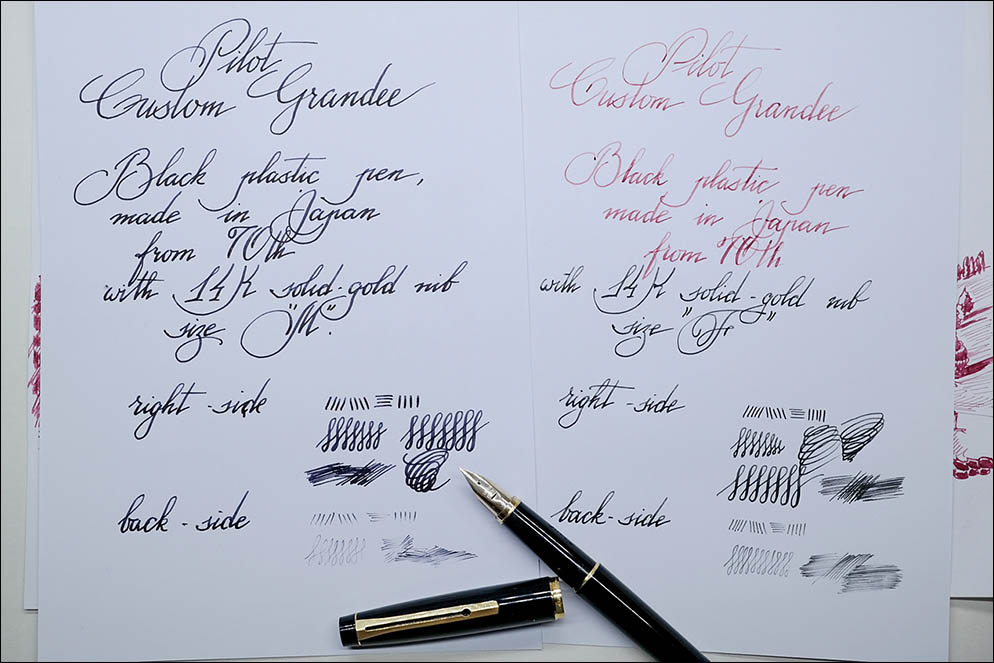 Pilot
Custom Grandee
Black plastic pen,
made in Japan
from 70th
with 14K solid-gold nib
size "M".
right-side
back-side
Pilot
Custom Grandee
Black plastic pen
made in Japan
from 70th
with 14K solid-gold nib
size "Fr"
right-side
back-side